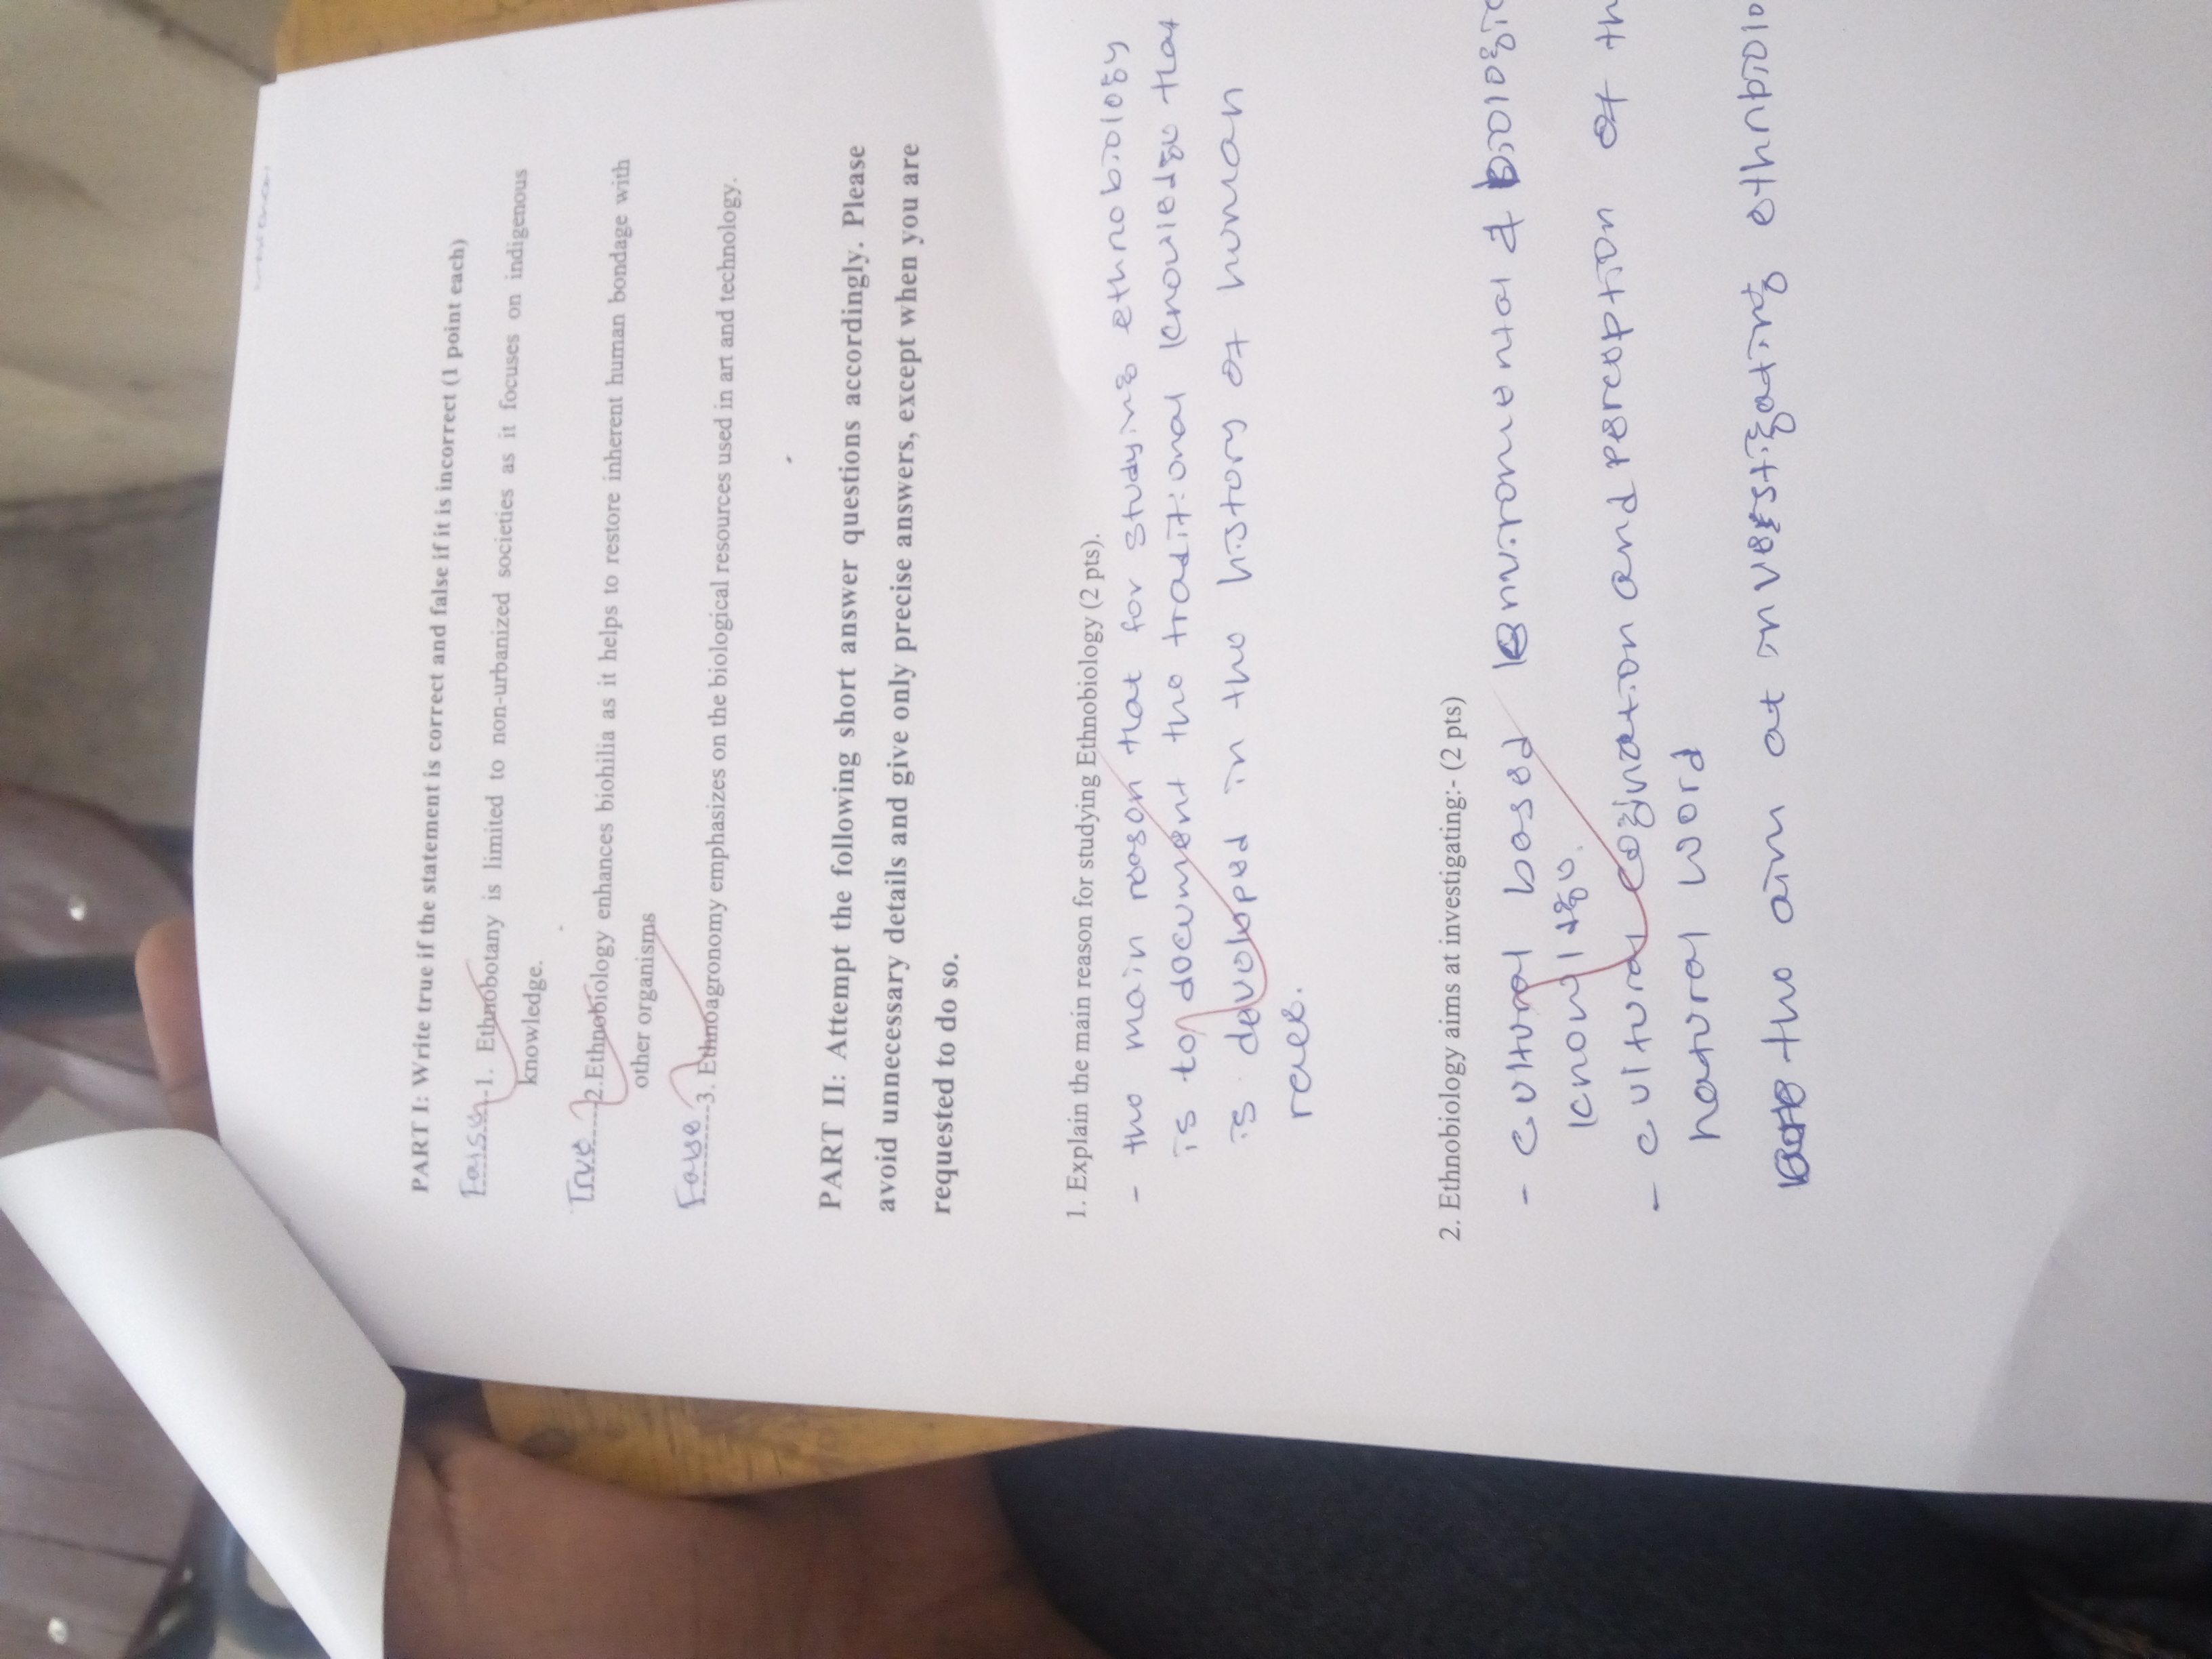 PART I: Write true if the statement is correct and false if it is incorrect (1 point each)
False 1. Ethnobotany is limited to non-urbanized societies as it focuses on indigenous
knowledge.
True 2.Ethnobiology enhances biohilia as it helps to restore inherent human bondage with
other organisms
False 3. Ethnoagronomy emphasizes on the biological resources used in art and technology.
PART II: Attempt the following short answer questions accordingly. Please
avoid unnecessary details and give only precise answers, except when you are
requested to do so.
1. Explain the main reason for studying Ethnobiology (2 pts).
- the main reason that for studying ethnobiology
is to document the traditional knowledge that
is developed in the history of human
race.
2. Ethnobiology aims at investigating:- (2 pts)
- cultural based enviromental & biologic
knowldge.
- cultural cogination and perception of th
natural word
the aim at inverstigating ethnbiolo